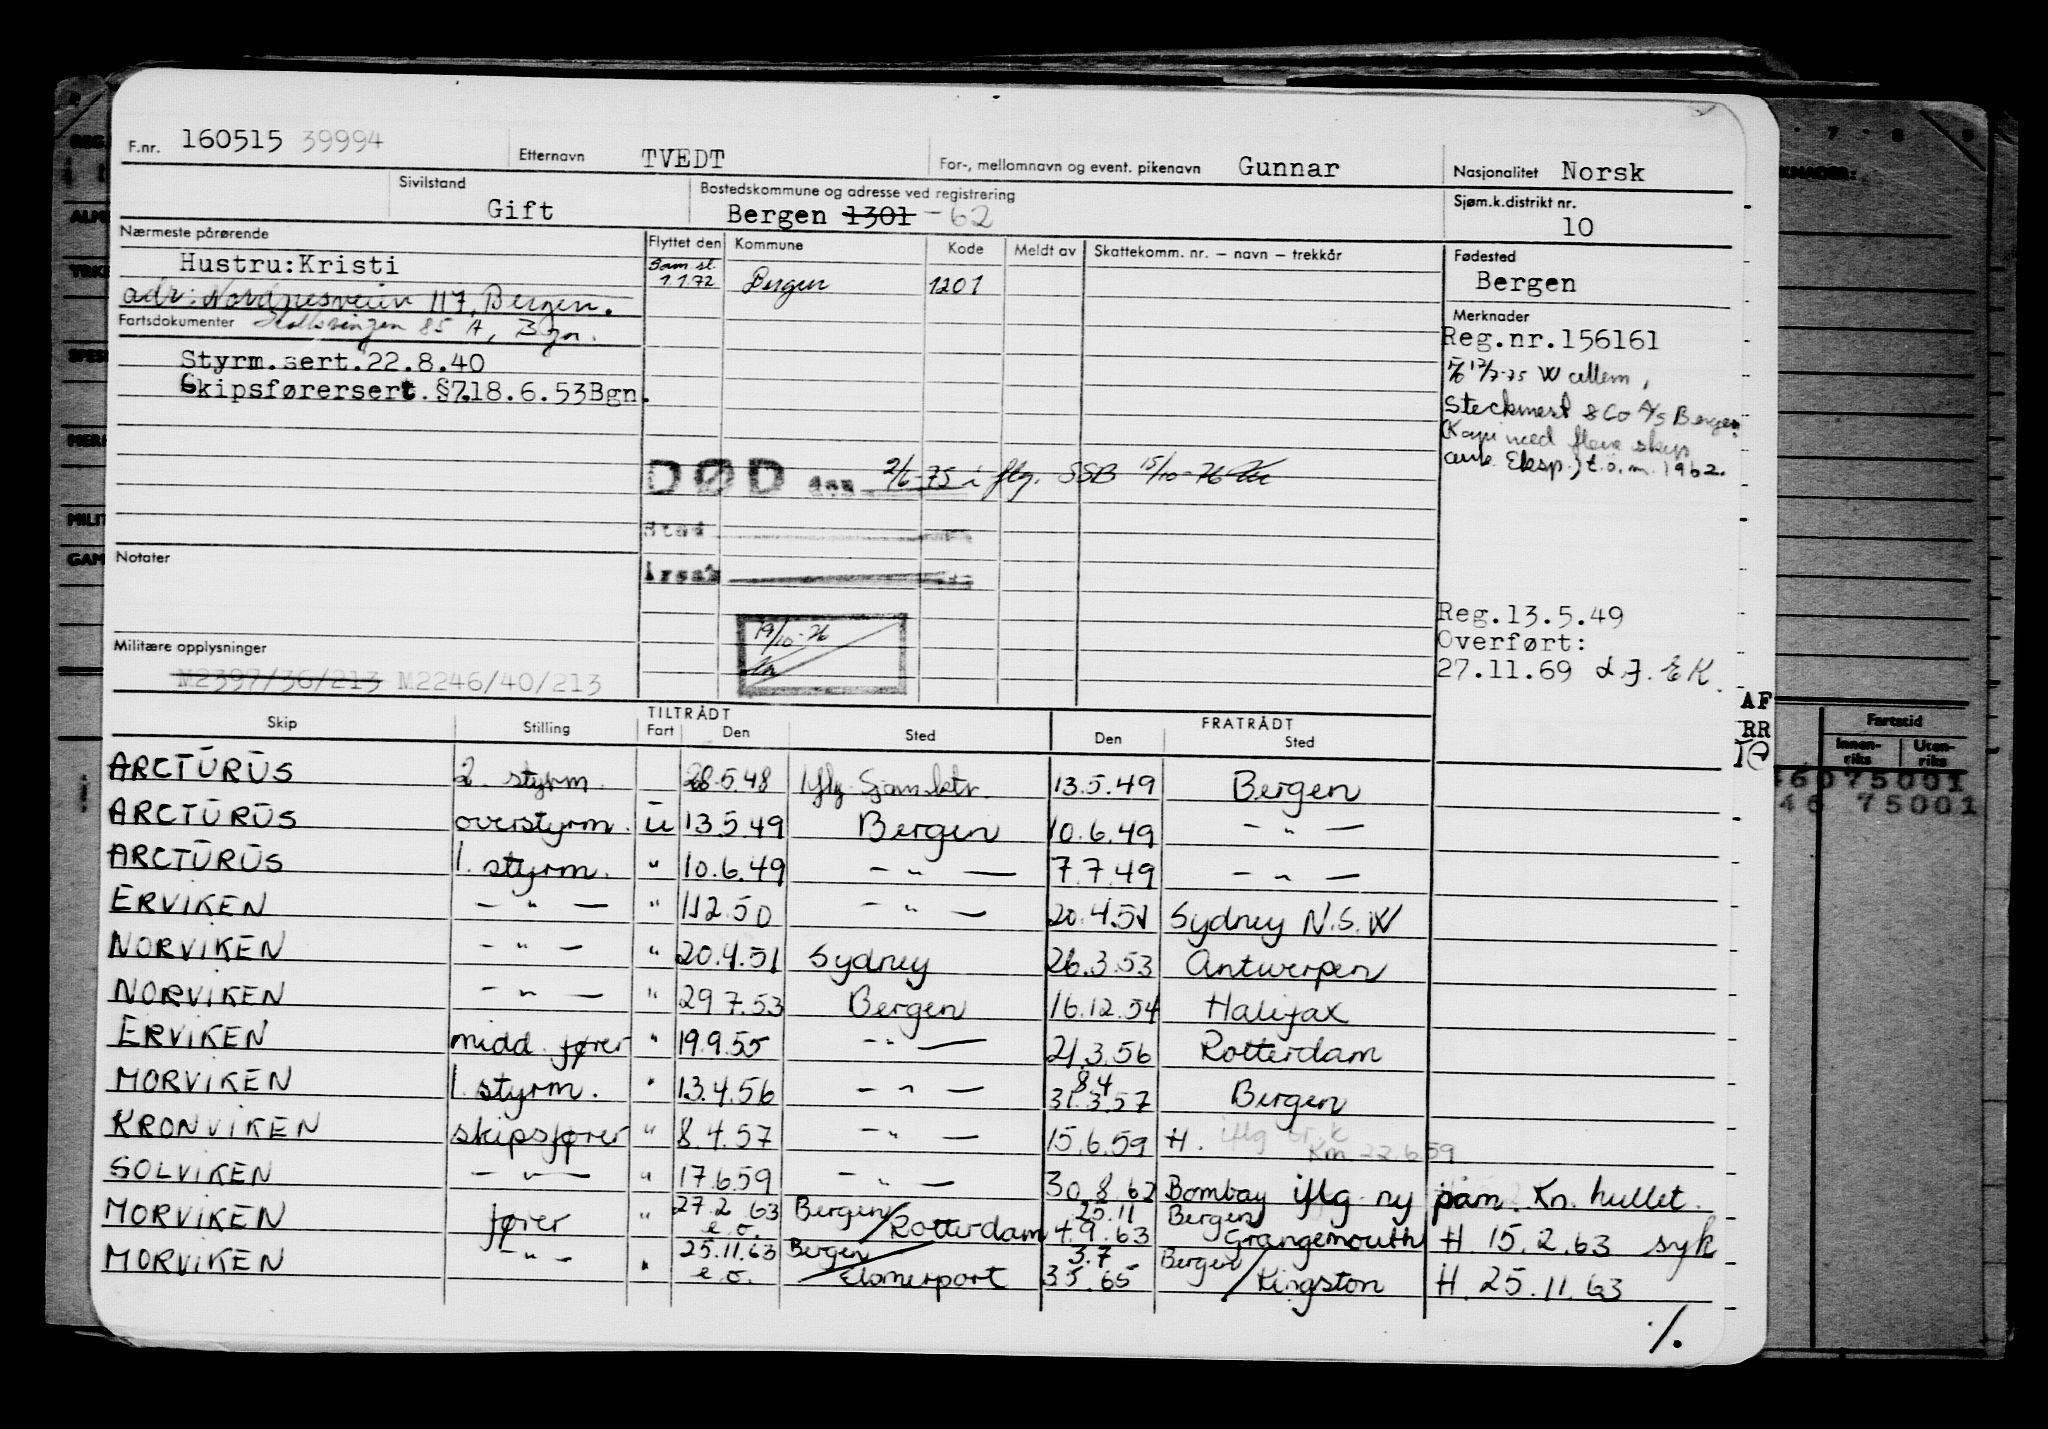 F.nr. 160515 39994 Etternavn TVEDT For-, mellomnavn og event. pikenavn Gunnar Nasjonalitet Norsk
Sivilstand Gift Bostedskommune og adresse ved registrering Bergen 1301 -62 Sjøm.k.distrikt nr. 10
Nærmeste pårørende
Hustru:Kristi
adr: Nordnesveien 117, Bergen.
85 A, Bgn.
Fartsdokumenter
Styrm.sert.22.8.40
Skipsførersert.§7.18.6.53Bgn.
Flyttet den Kommune Kode Meldt av Skattekomm. nr. – navn – trekkår
Sam sl. 1 1 72 Bergen 1201
Fødested
Bergen
Merknader
Reg.nr.156161
17/7-75 Wallem,
Steckmest & Co A/S Bergen
(Kopi med flere skip
ank. Eksp.) t.o.m. 1962.
DØD den 2/6-75 i flg. SSB 15/10-76
Sted
Årsak
19/10-76
Notater
Militære opplysninger
M2397/36/213 M2246/40/213
Reg.13.5.49
Overført:
27.11.69
AF
RR
Skip Stilling TILTRÅDT Fart Den Sted FRATRÅDT Den Sted
ARCTURUS 2. styrm. 28.5.48 iflg. Sjømktr. 13.5.49 Bergen
ARCTURUS overstyrm. u 13.5.49 Bergen 10.6.49 — " —
ARCTURUS 1. styrm. " 10.6.49 — " — 7.7.49 — " —
ERVIKEN — " — " 1.12.50 — " — 20.4.51 Sydney N.S.W
NORVIKEN — " — " 20.4.51 Sydney 26.3.53 Antwerpen
NORVIKEN — " — " 29.7.53 Bergen 16.12.54 Halifax
ERVIKEN midd. fører " 19.9.55 — " — 21.3.56 Rotterdam
MORVIKEN 1. styrm. " 13.4.56 — " — 8.4 31.3.57 Bergen
KRONVIKEN skipsfører " 8.4.57 — " — 15.6.59 H. iflg Km 22.6.59
SOLVIKEN — " — " 17.6.59 — " — 30.8.62 Bombay iflg ny påm. Kn. hullet.
MORVIKEN fører " 27.2 63 e.o. Bergen/Rotterdam 25.11 4.9.63 Bergen Grangemouth H. 15.2.63 syk
MORVIKEN — " — " 25.11.63 e.o. Bergen/ 3.7 3.5.65 Bergen/Kingston H. 25.11.63
·/.
KNADER:
Fartstid
Innen-riks Uten-riks
46075001
46 75001